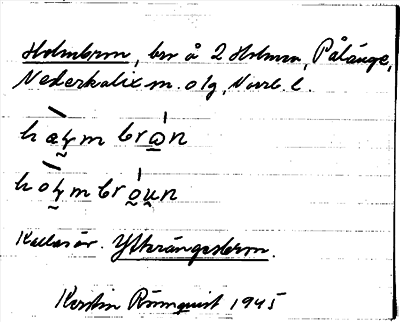 Holmbron, bro å 2 Holmen, Pålänge,
Nederkalix sn. o tg, Norrb. l.
hæɫm brọ̀n
hoɫm brọ̀u̯n
Kallas är. Ytterängesbron.
Kerstin Rönnquist 1945